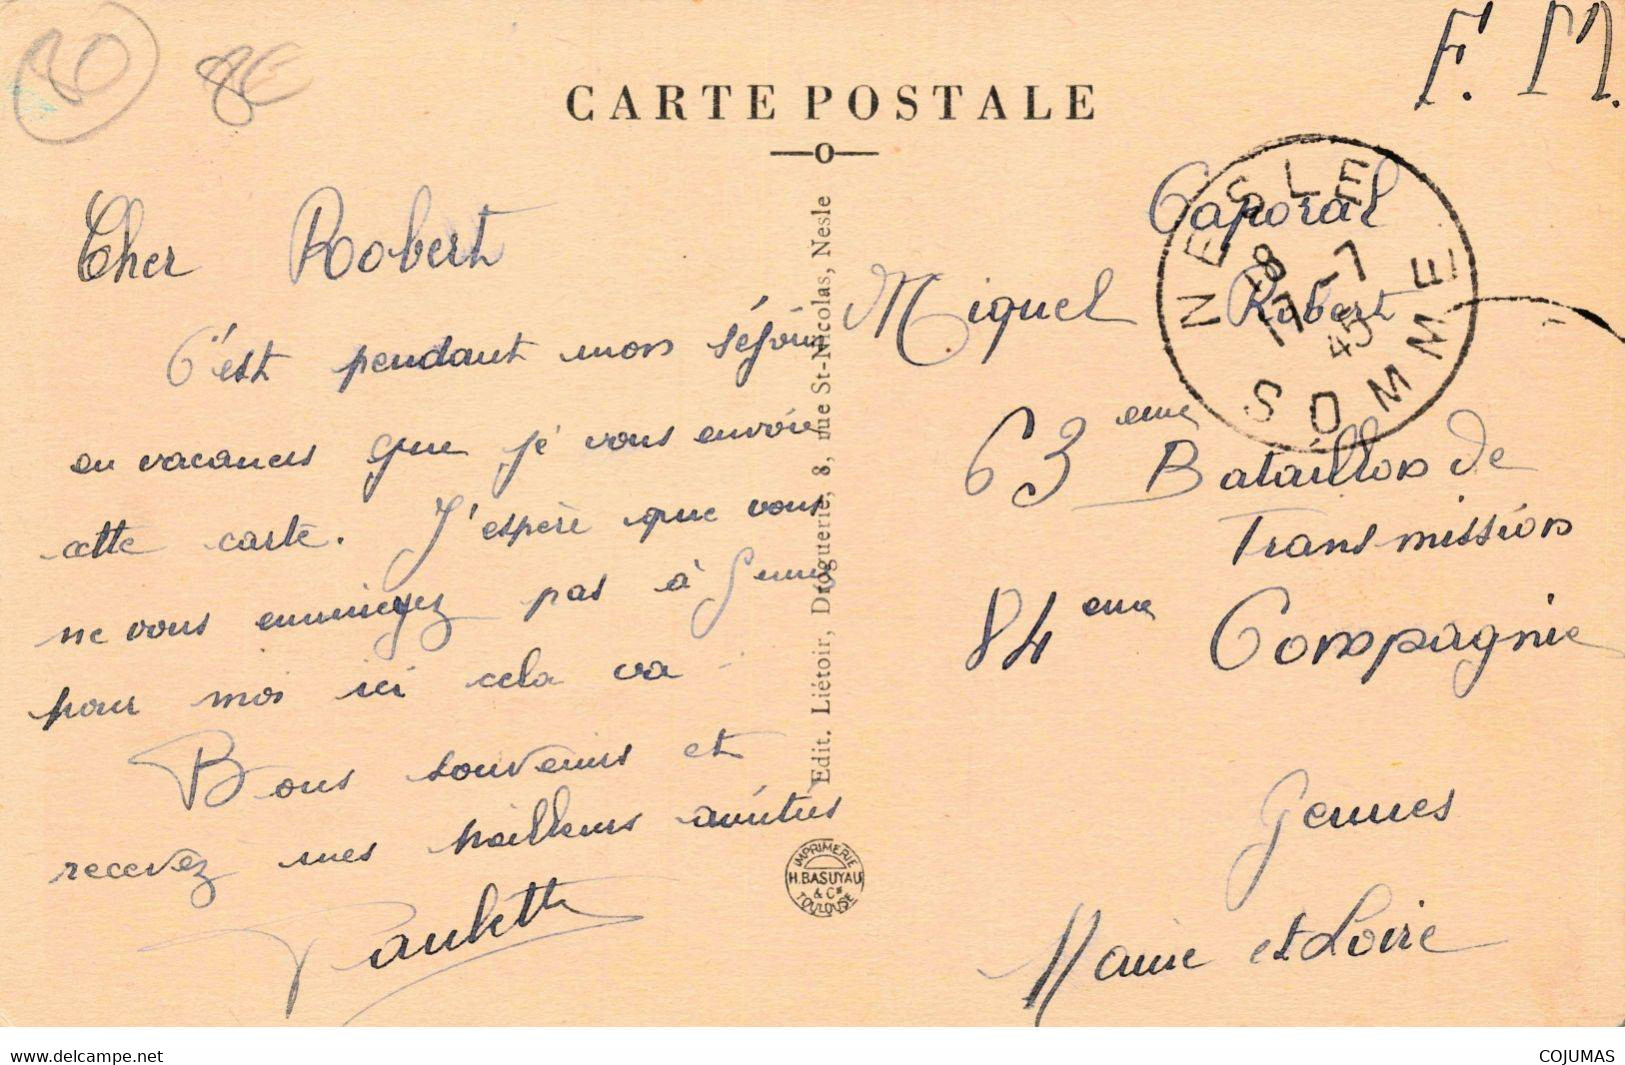 80
8E
F. M.
CARTE POSTALE
Cher Robert
C'est pendant mon séjour
en vacances que je vous envoie
cette carte. J'espère que vous
ne vous ennuieyez pas à Gennes
pour moi ici cela va
Bons souvenirs et
recevez mes meilleurs amitiés
Paulette
Edit. Liétoir, Droguerie, 8, rue St-Nicolas, Nesle
IMPRIMERIE
H. BASUYAU
& Cie
TOULOUSE
Caporal
Miquel Robert
63 eme Bataillon de
Transmission
84 eme Compagnie
Gennes
Maine et Loire
NESLE
18
17-7
45
SOMME
COJUMAS
delcampe.net